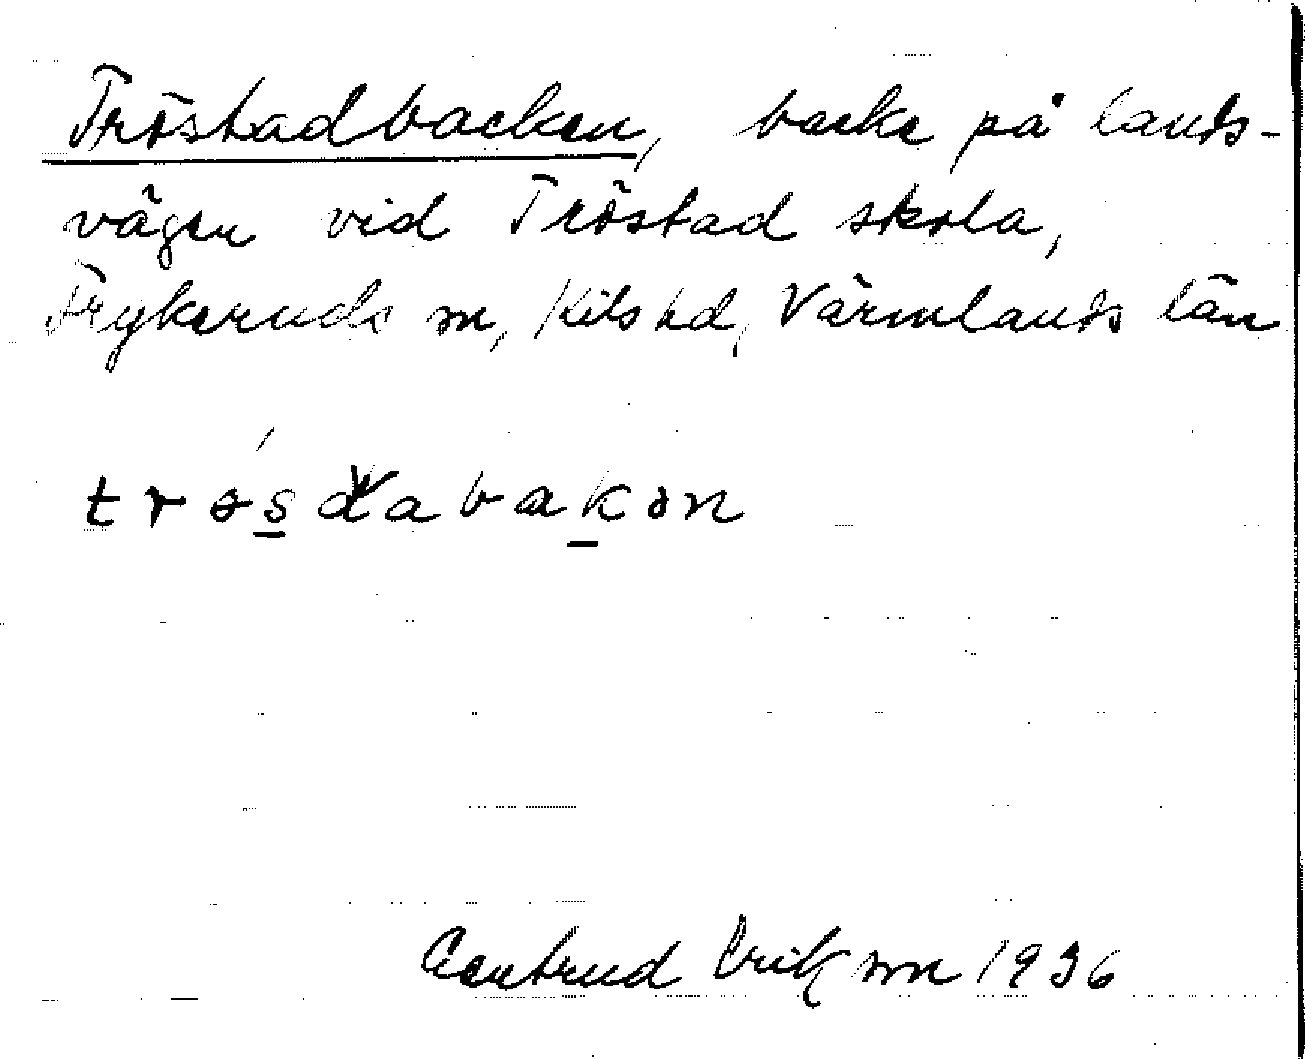 Tröstadbacken, backe på lands-
vägen vid Tröstad skola,
Frykeruds sn, Kils hd, Värmlands län
Gertrud Eriksson 1936